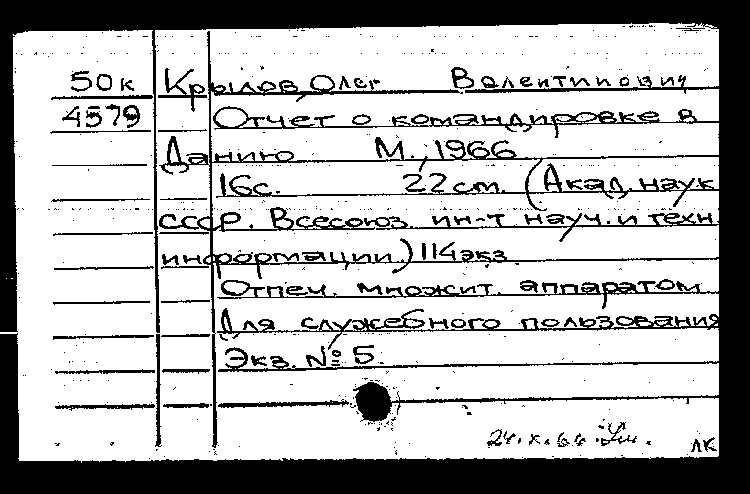 50к Крылов, Олег Валентинович
4579 Отчет о командировке в
Данию М., 1966
16с. 22 cm. (Акад. наук
СССР. Всесоюз. ин-т науч. и техн.
информации.) 114 экз.
Отпеч. множит. аппаратом
Для служебного пользования
Экз. № 5.
24.X.66
ЛК